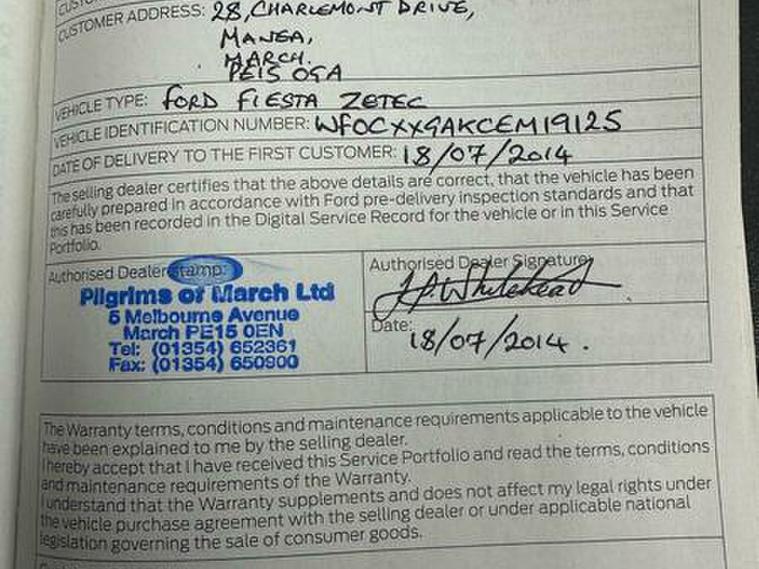 CUSTOMER ADDRESS: 28, CHARLEMONT DRIVE,
MANEA,
MARCH.
PE15 0GA
VEHICLE TYPE: FORD FIESTA ZETEC
VEHICLE IDENTIFICATION NUMBER: WF0CXXGAKCEM19125
DATE OF DELIVERY TO THE FIRST CUSTOMER: 18/07/2014
The selling dealer certifies that the above details are correct, that the vehicle has been
carefully prepared in accordance with Ford pre-delivery inspection standards and that
this has been recorded in the Digital Service Record for the vehicle or in this Service
Portfolio.
Authorised Dealer Stamp:
Pilgrims of March Ltd
5 Melbourne Avenue
March PE15 0EN
Tel: (01354) 652361
Fax: (01354) 650900
Authorised Dealer Signature:
J.P. Whitehead
Date: 18/07/2014.
The Warranty terms, conditions and maintenance requirements applicable to the vehicle
have been explained to me by the selling dealer.
I hereby accept that I have received this Service Portfolio and read the terms, conditions
and maintenance requirements of the Warranty.
I understand that the Warranty supplements and does not affect my legal rights under
the vehicle purchase agreement with the selling dealer or under applicable national
legislation governing the sale of consumer goods.